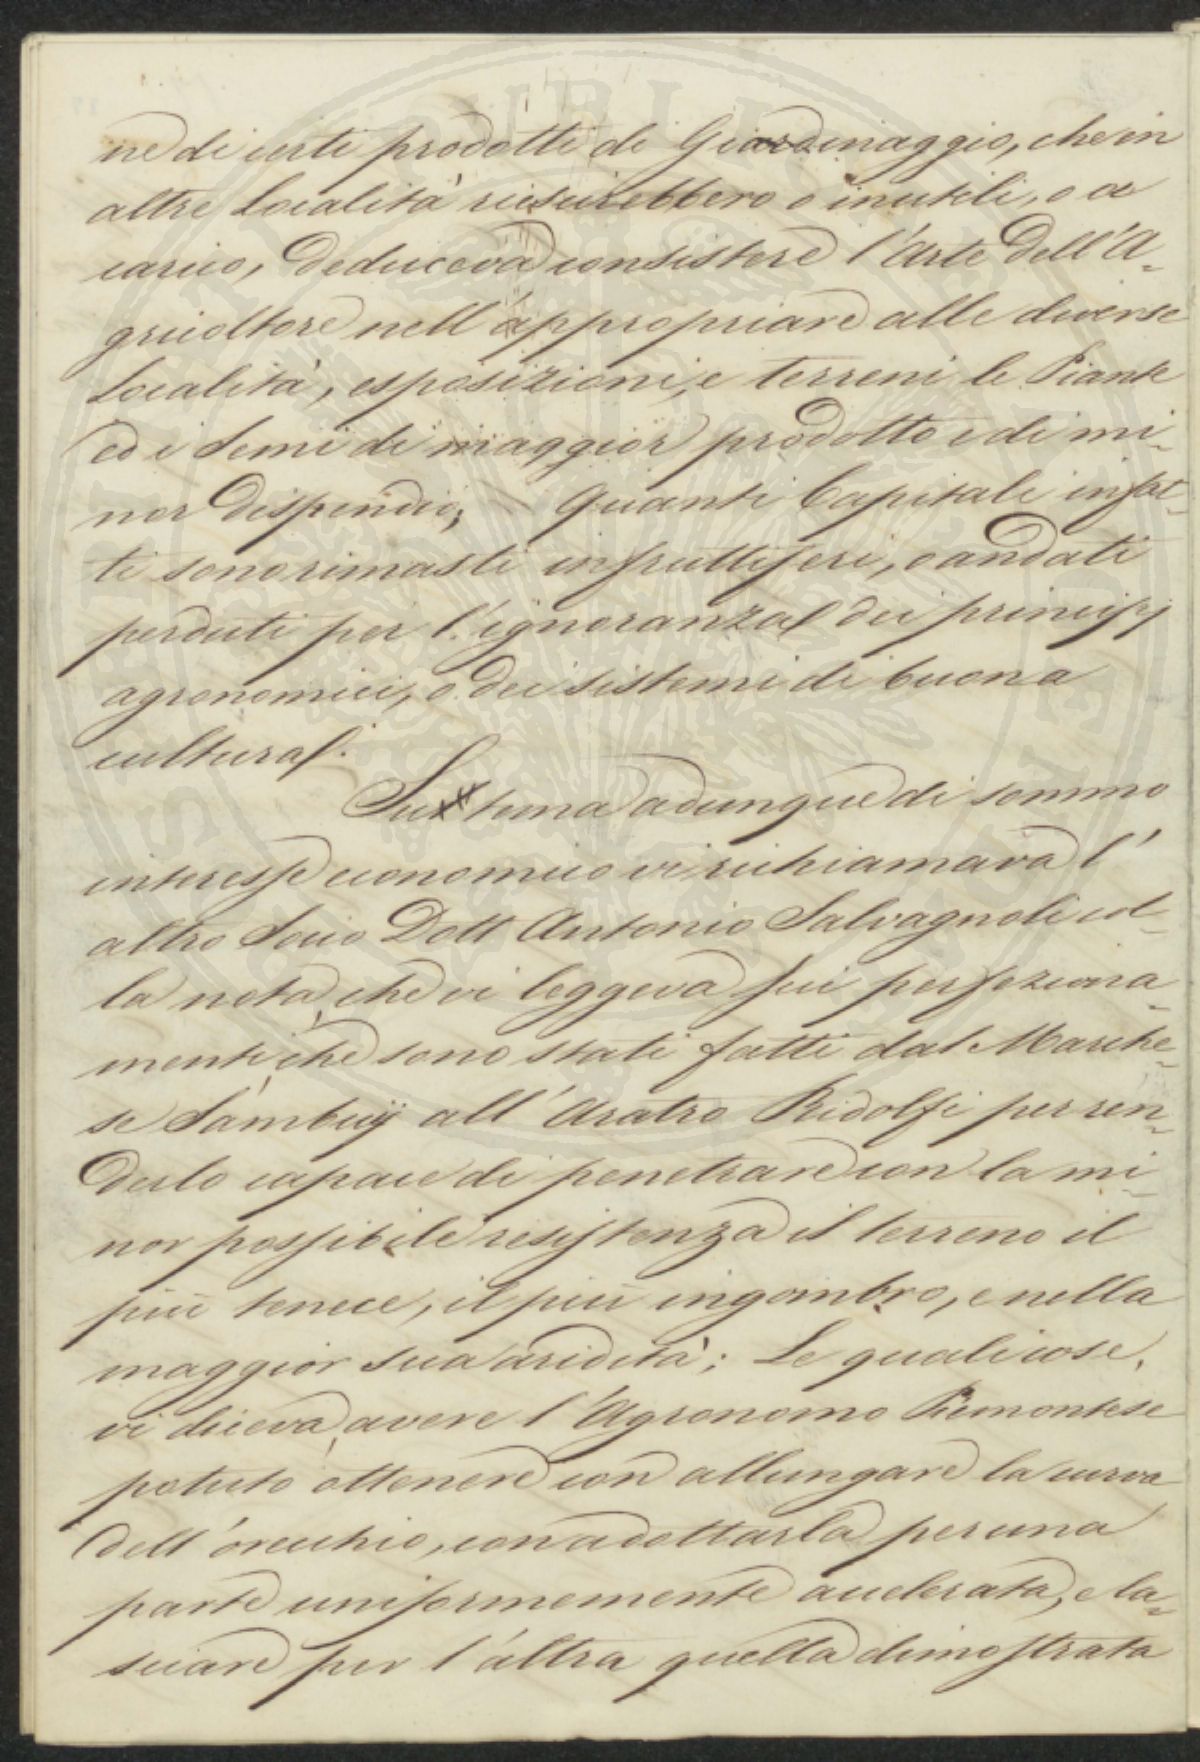 ne di certi prodotti di Giardinaggio, che in
altre Località riescirebbero o inutili, o a
carico, deduceva consistere l'Arte dell'A-
gricoltore nell'appropriare alle diverse
Località, esposizioni, e terreni le Piante
ed i Semi di maggior prodotto e di mi-
nor dispendio; Quanti Capitali infat-
ti sono rimasti infruttiferi, o andati
perduti per l'ignoranza dei principj
agronomici, o dei sistemi di buona
cultura.
Su tema adunque di sommo
interesse economico vi richiamava l'
altro Socio Dott Antonio Salvagnoli col-
la nota, che vi leggeva sui perfeziona-
menti, che sono stati fatti dal Marche-
se Sambuÿ all'Aratro Ridolfi per ren-
derlo capace di penetrare con la mi-
nor possibile resistenza il terreno il
più tenece, il più ingombro, e nella
maggior sua aridità; Le quali cose,
vi diceva, avere l'Agronomo Piemontese
potuto ottenere con allungare la curva
dell'orecchio, con adottarla per una
parte uniformemente accelerata, e la-
sciare per l'altra quella dimostrata